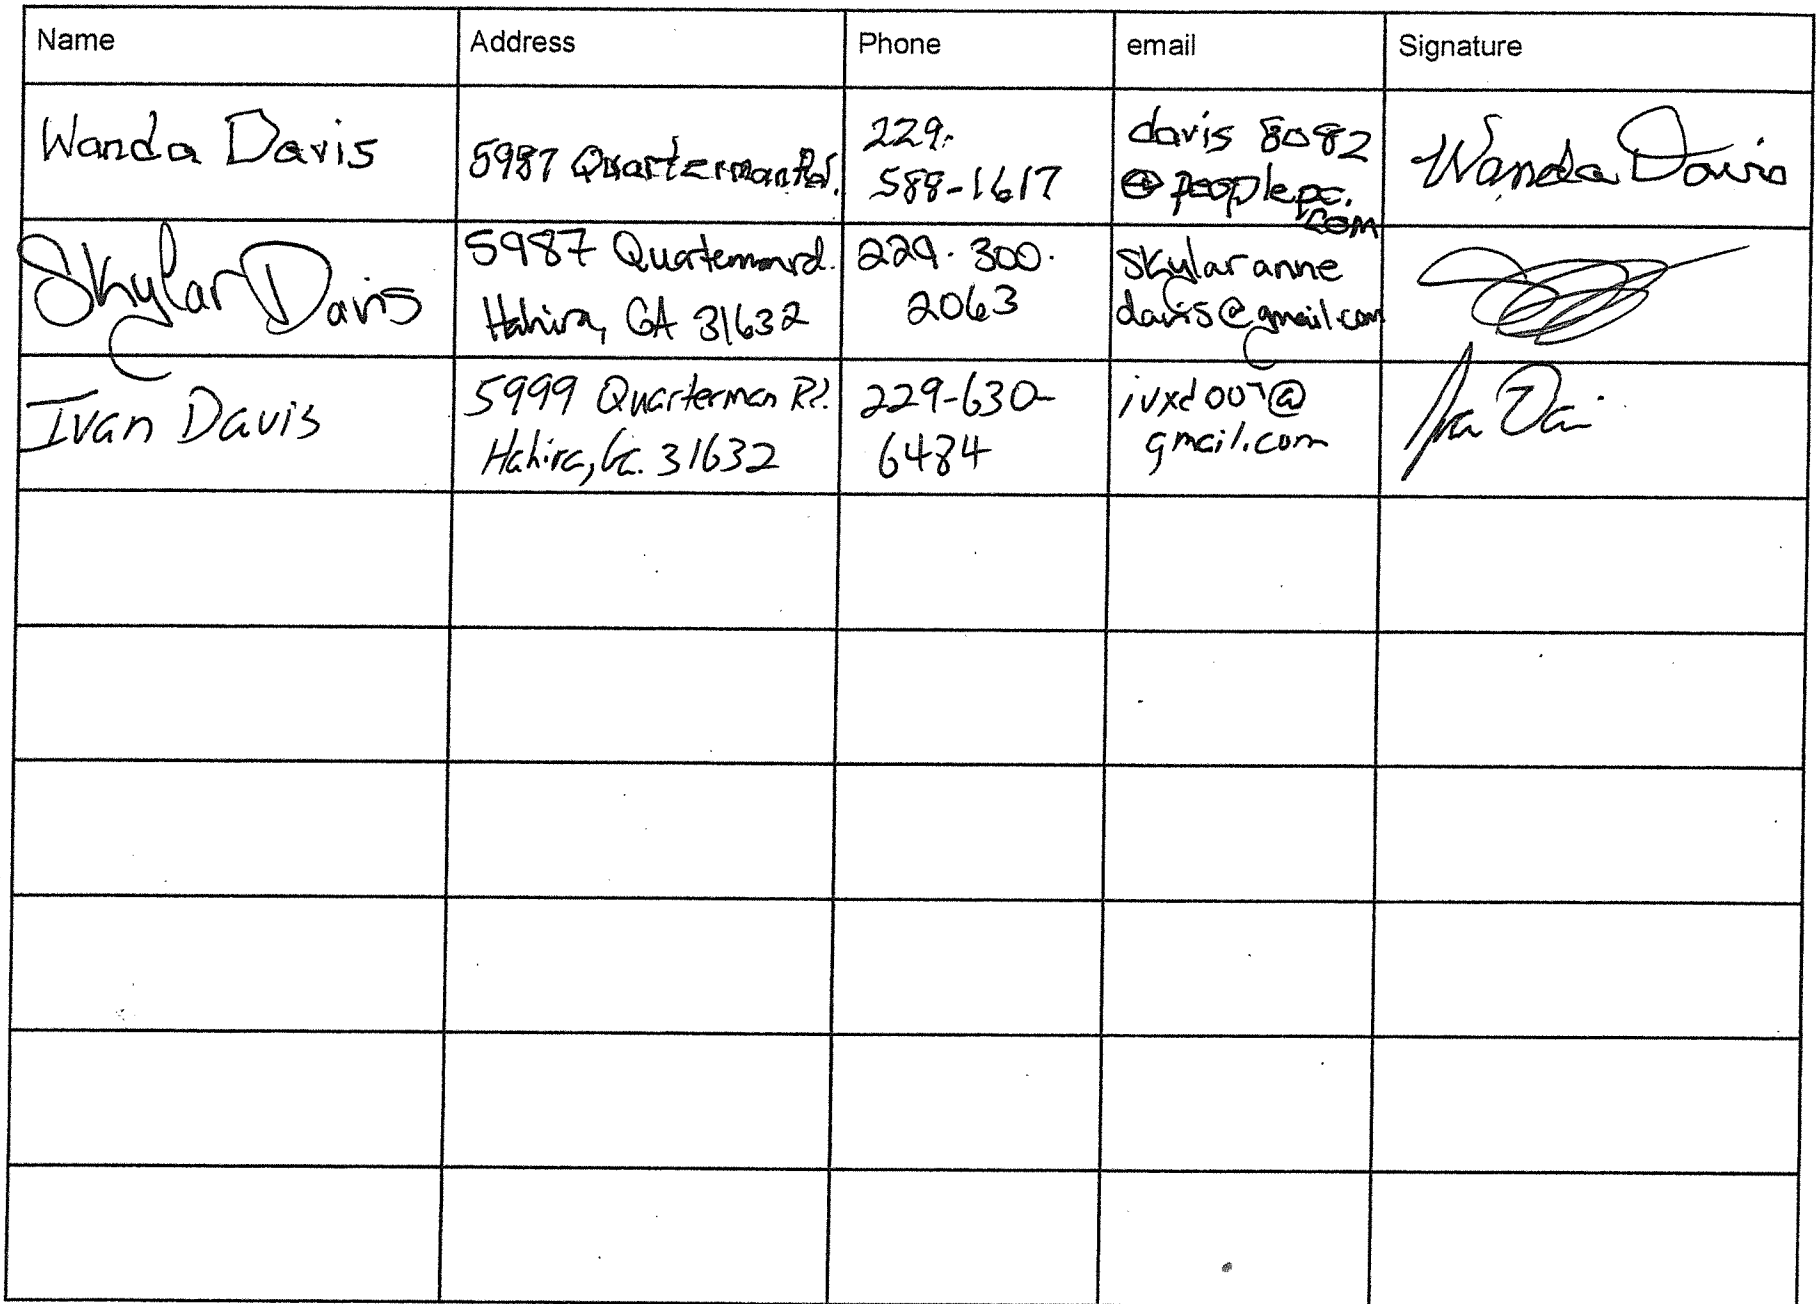 Name Address Phone email Signature
Wanda Davis
5987 Quarterman Rd.
229-
588-1617
davis 8082
@peoplepc.
com
Wanda Davis
Skylar Davis
5987 Quarterman rd.
Hahira, GA 31632
229. 300.
2063
skylar anne
davis@gmail.com
Ivan Davis
5999 Quarterman Rd.
Hahira, Ga. 31632
229-630-
6484
ivxd007@
gmail.com